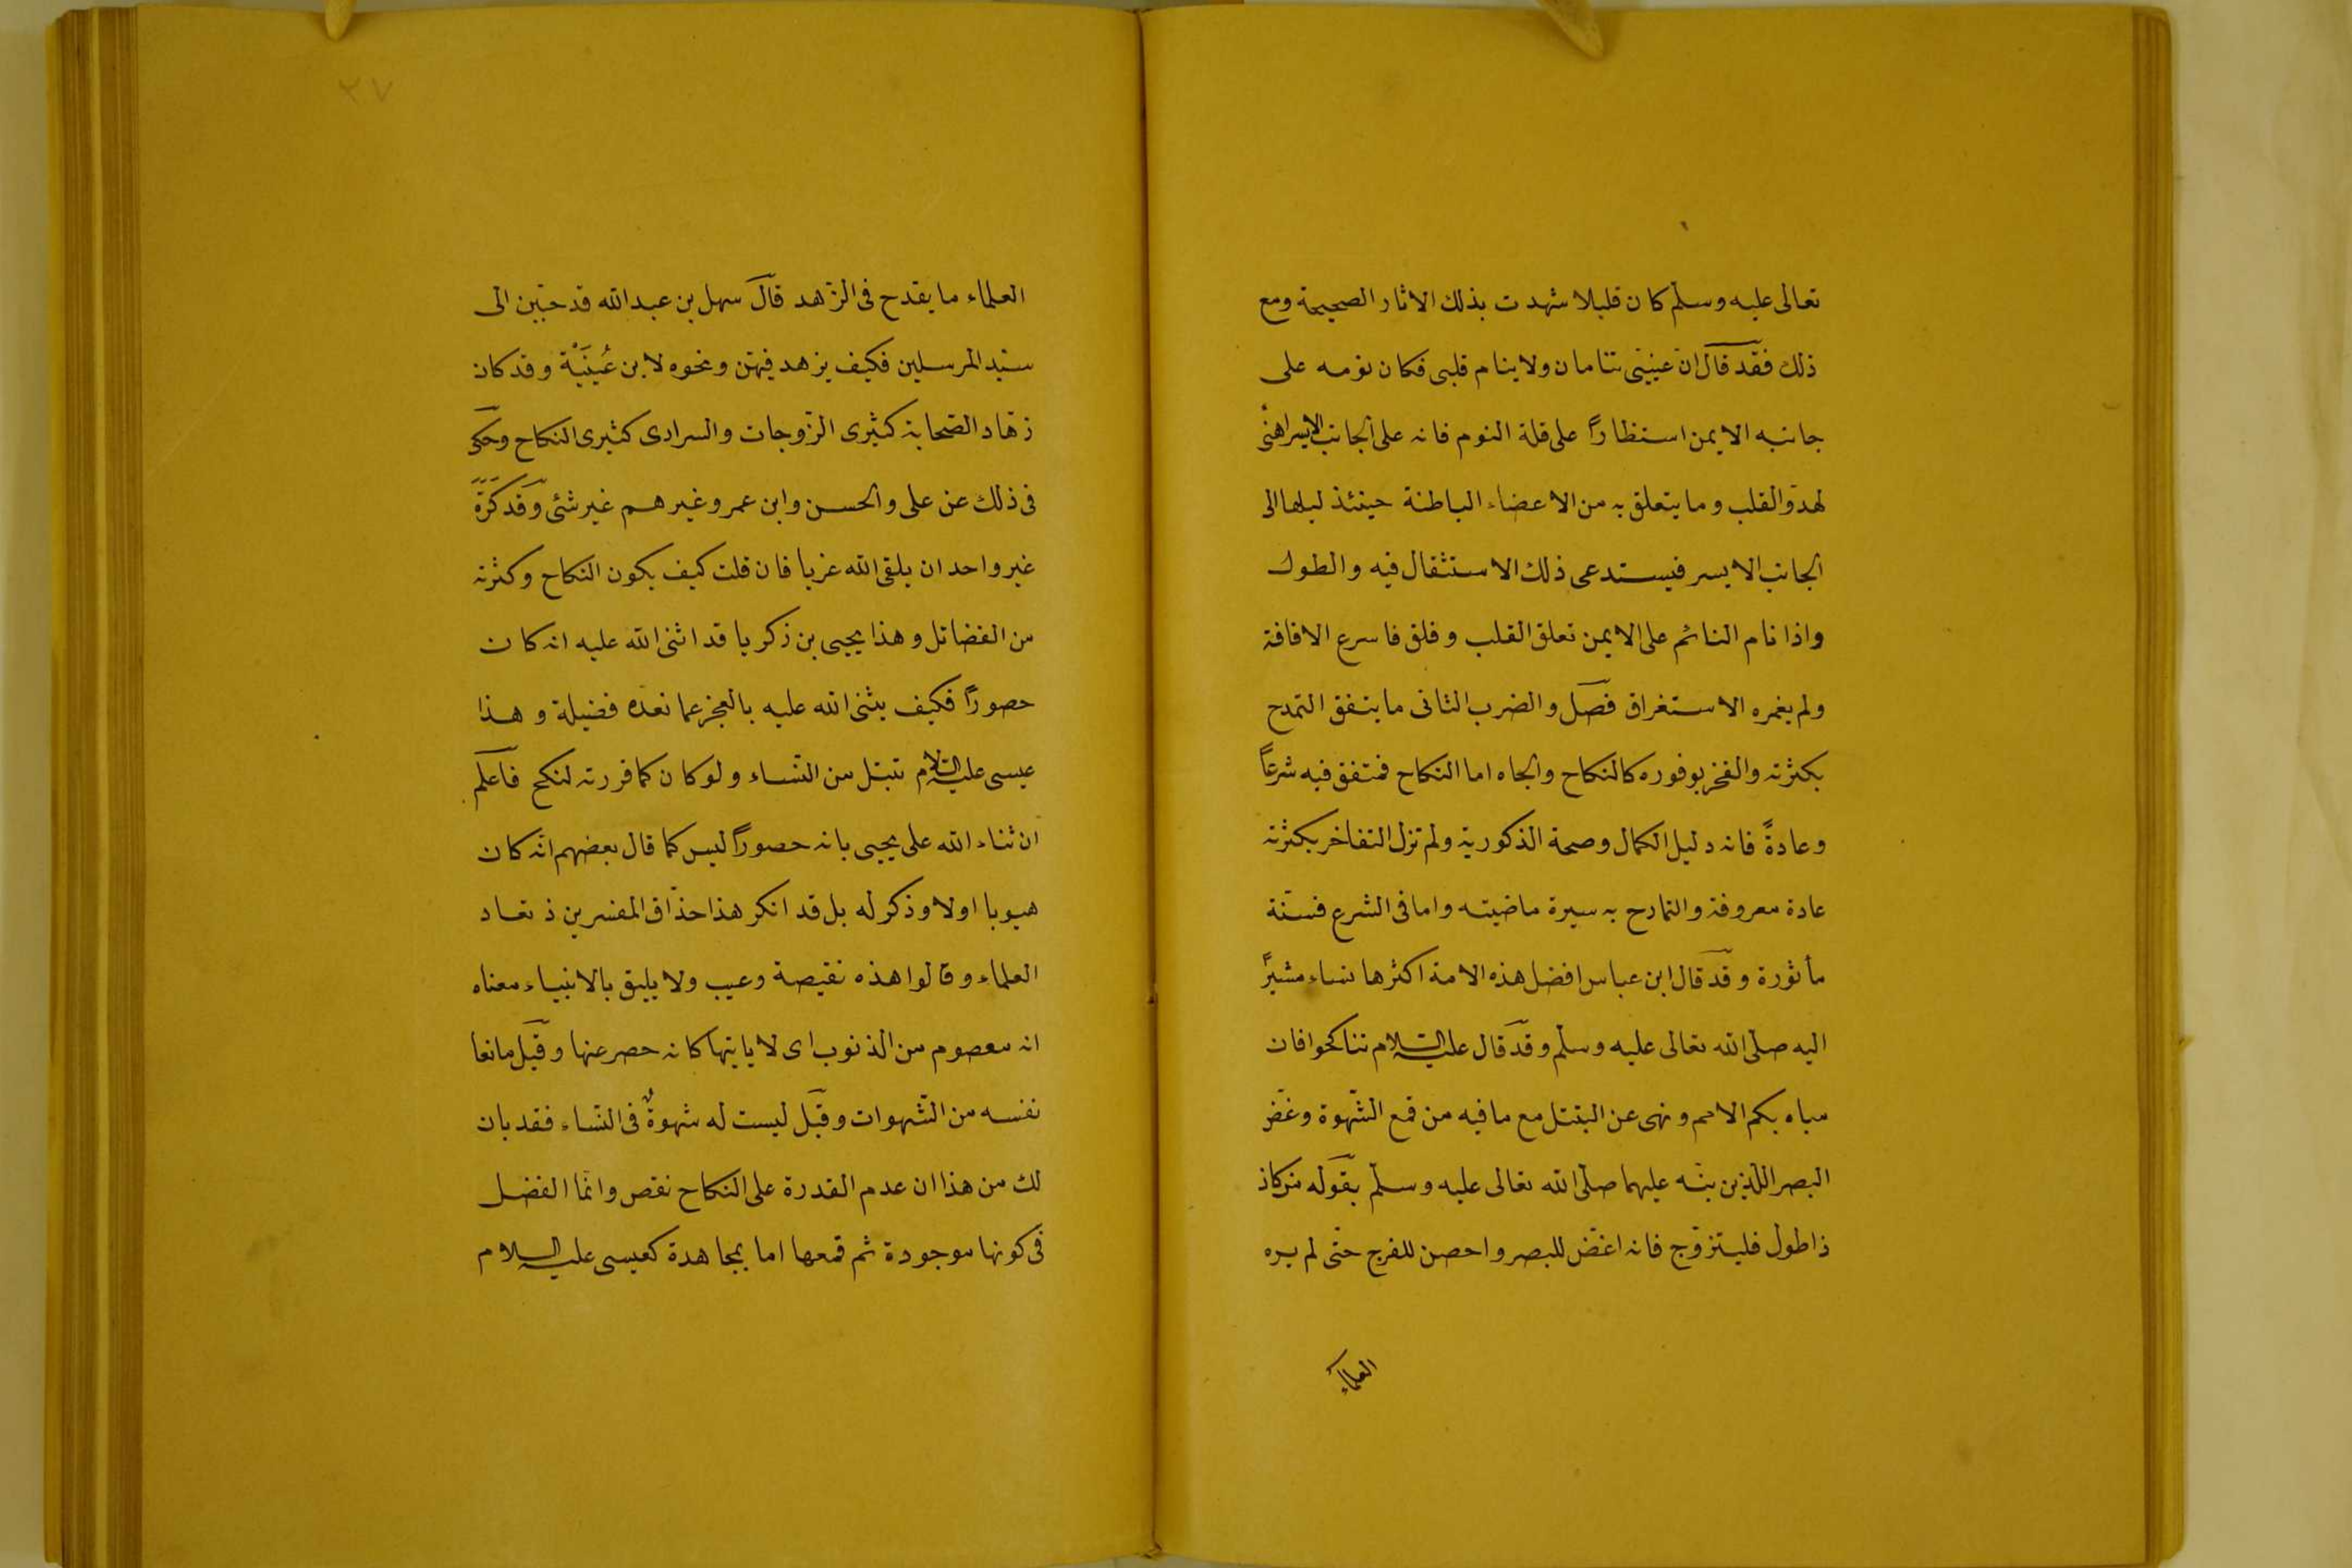 تعالى عليه وسلّم كان قليلا شهدت بذلك الاثار الصحيحة ومع
ذلك فقد قال انّ عينيّى تنامان ولاينام قلبى فكان نومه على
جانبه الايمن استظهاراً على قلة النوم فانه على الجانب الايسر اهنى
لهدوّ القلب وما يتعلق به من الاعضاء الباطنة حينئذ ليلها الى
الجانب الايسر فيستدعى ذلك الاستثقال فيه والطول
واذا نام النائم على الايمن تعلق القلب وقلق فاسرع الافاقة
ولم يغمره الاستغراق فصل والضرب الثانى ما يتفق التمدح
بكثرته والفخر بوفوره كالنكاح والجاه اما النكاح فمتفق فيه شرعاً
وعادةً فانه دليل الكمال وصحة الذكورية ولم تزل التفاخر بكثرته
عادة معروفة والتمادح به سيرة ماضيته واما فى الشرع فسنّة
مأثورة وقد قال ابن عباس افضل هذه الامة اكثرها نساء مشيرًا
اليه صلّى الله تعالى عليه وسلّم وقد قال عليه السلام تناكحوا فان
مباه بكم الامم ونهى عن التبتل مع ما فيه من قمع الشّهوة وغضّ
البصر اللّذين نبّه عليهما صلّى الله تعالى عليه وسلّم بقوله من كان
ذا طول فليتزوّج فانه اغضّ للبصر واحصن للفرج حتّى لم يره
العلماء
٢٧
العلماء ما يقدح فى الزّهد قال سهل بن عبد الله قد حبّبن الى
سيّد المرسلين فكيف يزهد فيهنّ ونحوه لابن عُيَيْنَة وقد كان
زهّاد الصّحابة كثيرى الزّوجات والسرارى كثيرى النكاح وحكى
فى ذلك عن على والحسن وابن عمر وغيرهم غير شئ وقد كره
غير واحد ان يلقى الله عزبا فان قلت كيف يكون النكاح وكثرته
من الفضائل وهذا يحيى بن زكريا قد اثنى الله عليه انه كان
حصوراً فكيف يثنى الله عليه بالعجز عما نعدّه فضيلة وهذا
عيسى عليه السلام تبتل من النّساء ولو كان كما قررته لنكح فاعلم
ان ثناء الله على يحيى بانه حصوراً ليس كما قال بعضهم انّه كان
هيوبا اولا وذكر له بل قد انكر هذا حذّاق المفسرين ذ نقاد
العلماء وقالوا هذه نقيصة وعيب ولا يليق بالانبياء معناه
انه معصوم من الذنوب اى لا ياتيها كانه حصر عنها وقيل مانعا
نفسه من الشّهوات وقيل ليست له شهوةٌ فى النّساء فقد بان
لك من هذا ان عدم القدرة على النكاح نقص وانّما الفضل
فى كونها موجودة ثم قمعها اما بمجاهدة كعيسى عليه السلام